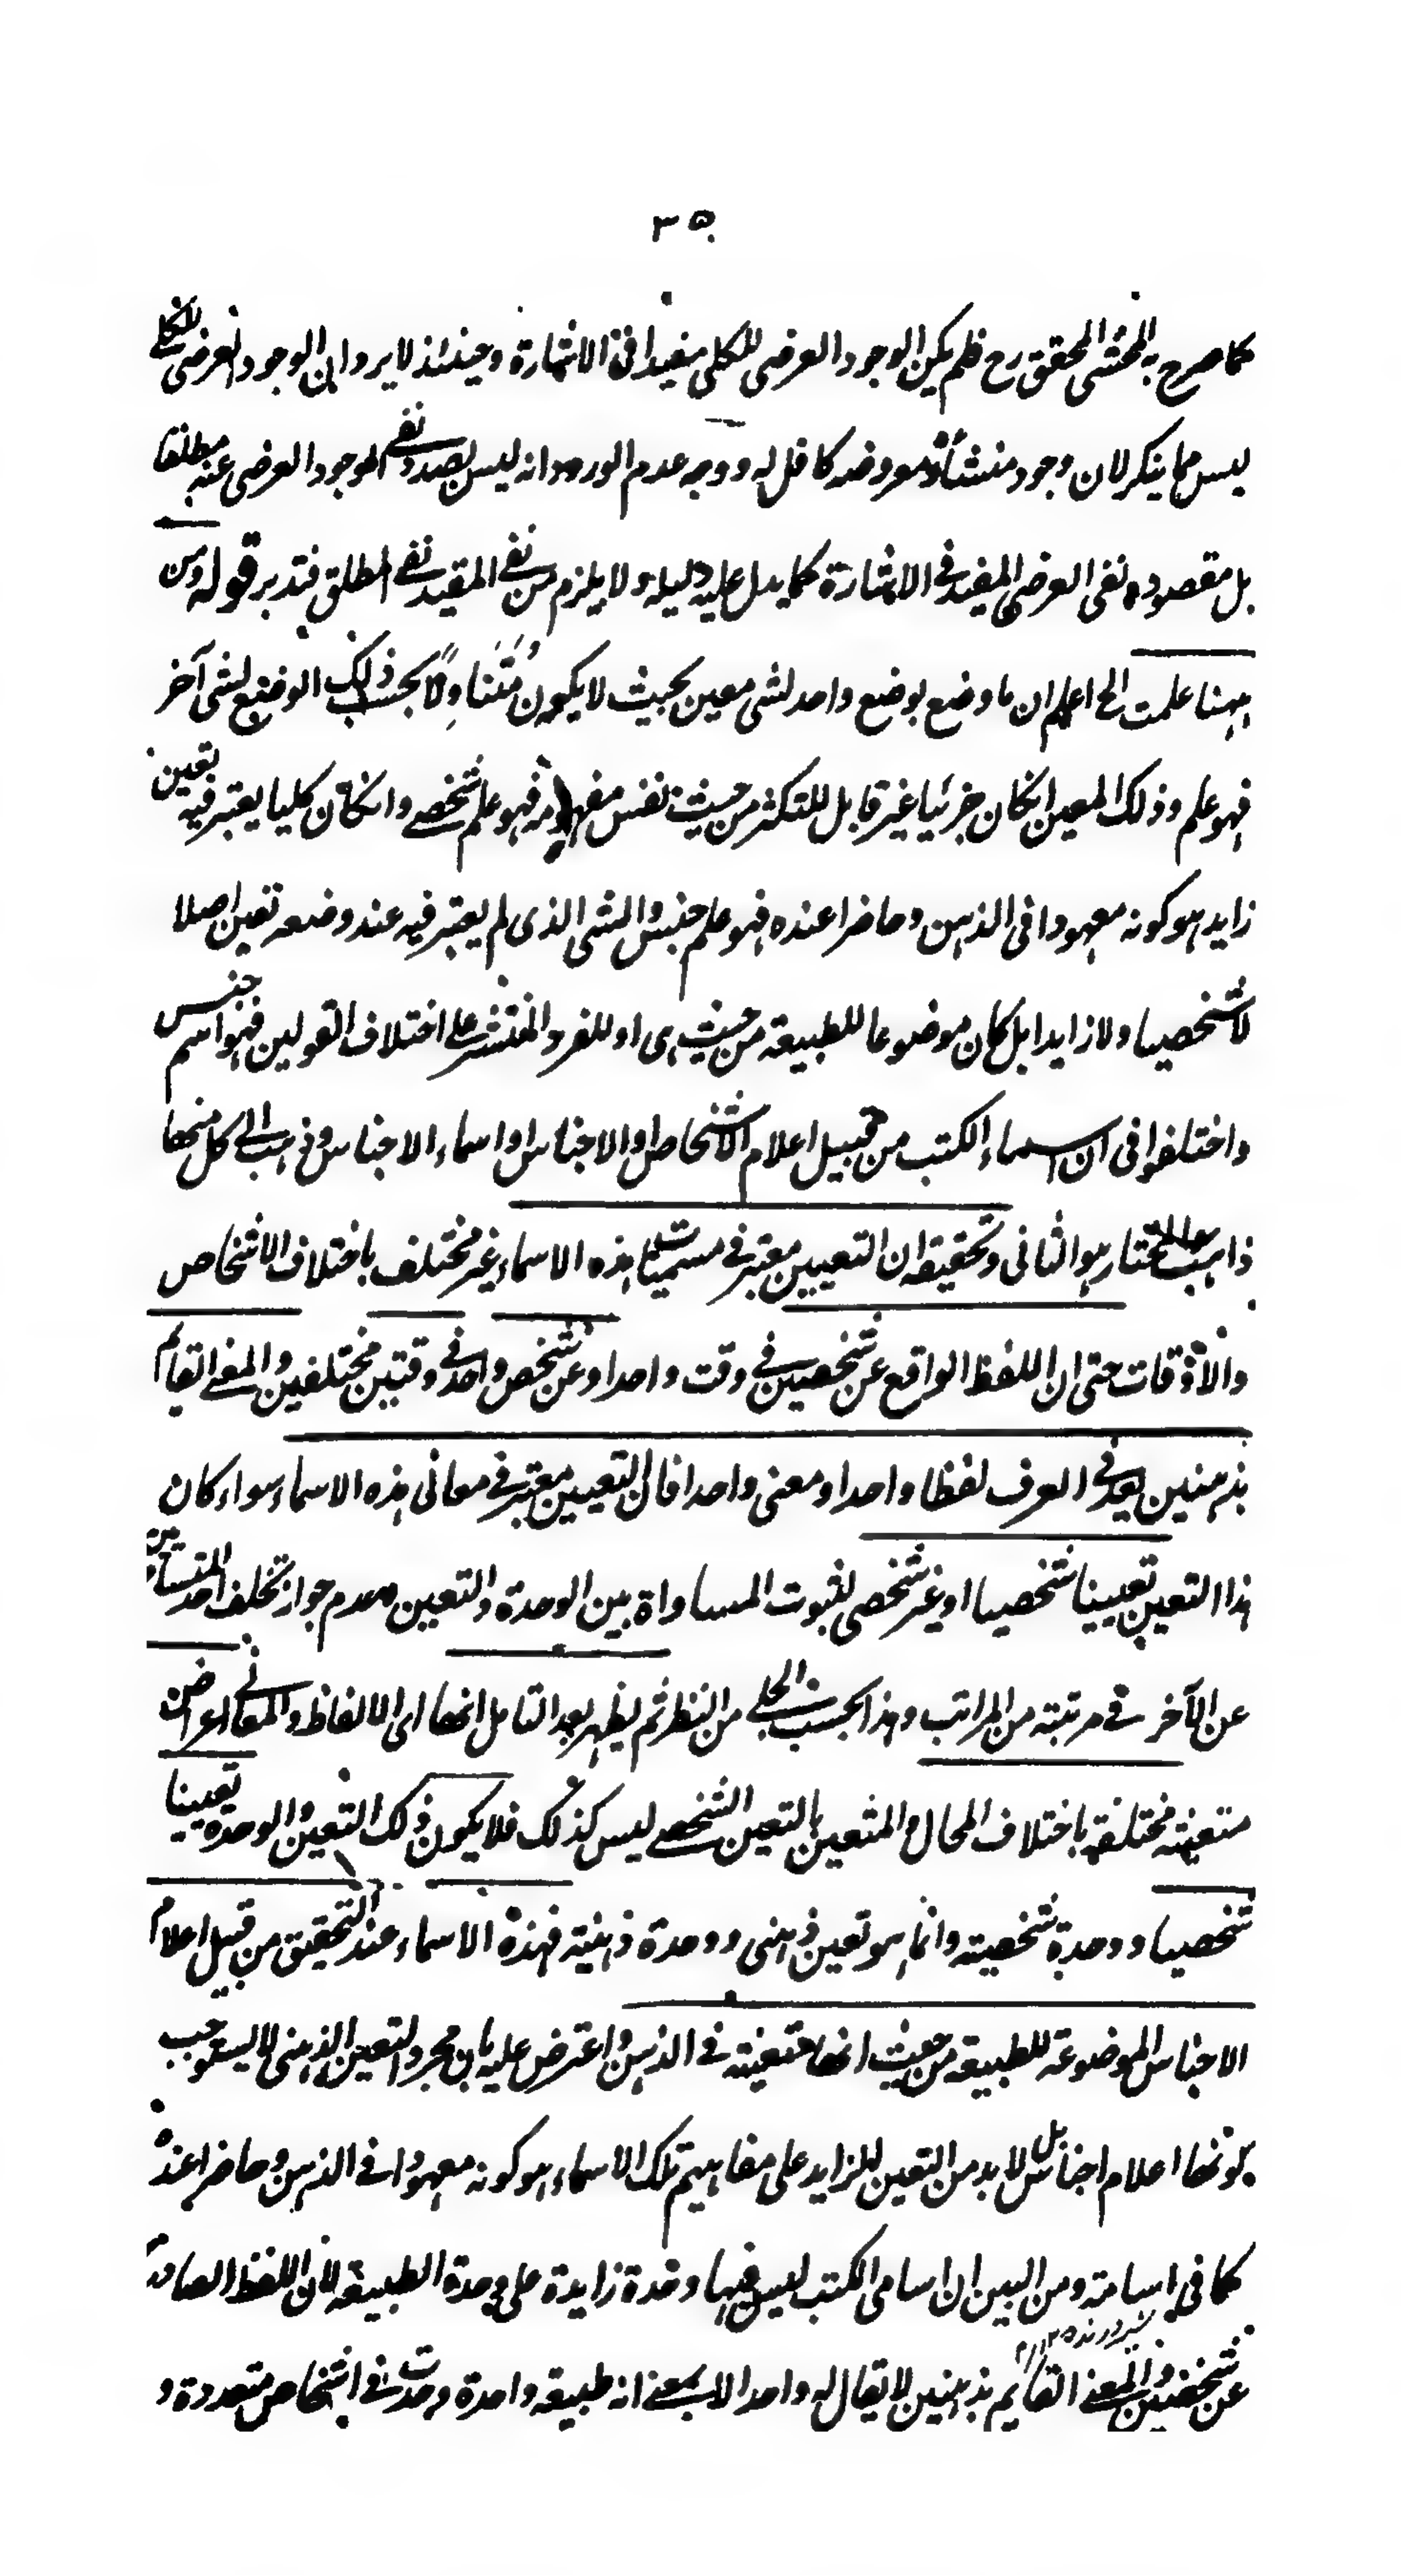 ٣٥
كما صرح به المحشى المحقق رح فلم يكن الوجود العرضى للكلى مفيدا فى الاشارة وحينئذ لا يرد ان الوجود العرضى للكلى
ليس مما ينكر لان وجود منشأه ومعروضه كاف له ووجه عدم الورود انه ليس بصدد نفى الوجود العرضى عنه مطلقا
بل مقصوده نفى العرضى المفيد فى الاشارة كما يدل عليه دليله ولا يلزم من نفى المقيد نفى المطلق فتدبر قوله ومن
ههنا علمت الخ اعلم ان ما وضع بوضع واحد لشى معين بحيث لا يكون مُتَنَاوِلًا بحسب ذلك الوضع لشى آخر
فهو علم وذلك المعين انكان جزئيا غير قابل للتكثر من حيث نفس مفهومه فهو علم شخصى وانكان كليا يعتبر فيه تعين
زايد هو كونه معهودا فى الذهن وحاضرا عنده فهو علم جنس والشى الذى لم يعتبر فيه عند وضعه تعين اصلا
لا شخصيا ولا زايدا بل كان موضوعا للطبيعة من حيث هى او للفرد المنتشر على اختلاف القولين فهو اسم جنس
واختلفوا فى ان اسماء الكتب من قبيل اعلام الاشخاص او الاجناس او اسماء الاجناس وذهب الى كل منها
ذاهب والمختار هو الثانى وتحقيقه ان التعيين معتبر فى مسميات هذه الاسماء غير مختلف باختلاف الاشخاص
والاوقات حتى ان اللفظ الواقع عن شخصين فى وقت واحد او عن شخص واحد فى وقتين مختلفين والمعنى القايم
بذهنين يعد فى العرف لفظا واحدا ومعنى واحدا فان التعيين معتبر فى معانى هذه الاسماء سواء كان
هذا التعين تعيينا شخصيا او غير شخصى لثبوت المساواة بين الوحدة والتعين وعدم جواز تخلف احد المتساويين
عن الآخر فى مرتبة من المراتب وهذا بحسب الجلى من النظر ثم يظهر بعد التامل انها اى الالفاظ والمعانى اعراض
متعينة مختلفة باختلاف المحال والمتعين بالتعين الشخصى ليس كذلك فلا يكون ذلك التعين والوحدة تعيينا
شخصيا ووحدة شخصية وانما هو تعين ذهنى ووحدة ذهنية فهذه الاسماء عند التحقيق من قبيل اعلام
الاجناس الموضوعة للطبيعة من حيث انها متعينة فى الذهن واعترض عليه بان مجرد التعين الذهنى لا يستوجب
كونها اعلام اجناس بل لابد من التعين الزايد على مفاهيم تلك الاسماء هو كونه معهودا فى الذهن وحاضرا عنده
كما فى اسامة ومن البين ان اسامى الكتب ليس فيها وحدة زايدة على وحدة الطبيعة لان اللفظ الصادر
عن شخصين والمعنى القايم بذهنين لا يقال له واحد الا بمعنى انه طبيعة واحدة وجدت فى اشخاص متعددة و